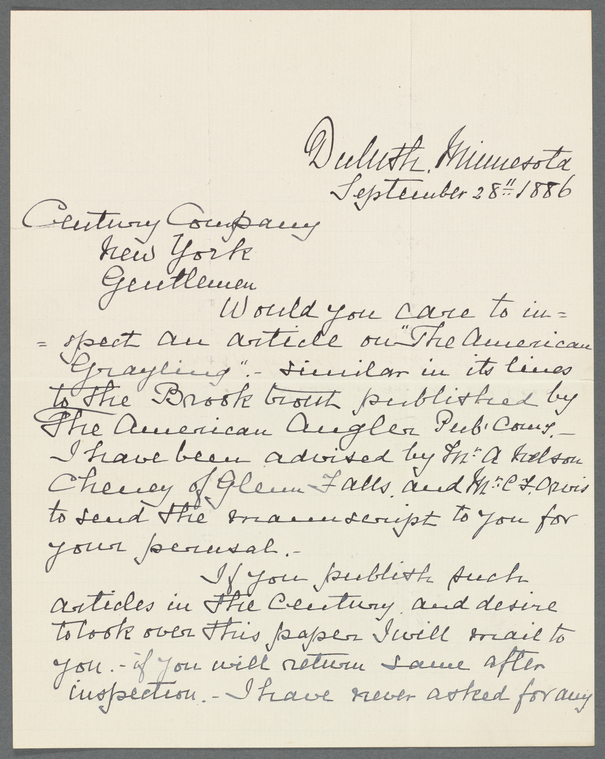 Duluth, Minnesota
September 28" 1886
Century Company
New York
Gentlemen
Would you care to in=
= spect an article on "The American
Grayling".- similar in its lines
to the Brook trout published by
The American Angler Pub. Comy.-
I have been advised by Mr. A Nelson
Cheney of Glenn Falls. and Mr. C. F. Orvis
to send the manuscript to you for
your perusal.-
If you publish such
articles in the Century. and desire
to look over this paper I will mail to
you.- if you will return same after
inspection.- I have never asked for any